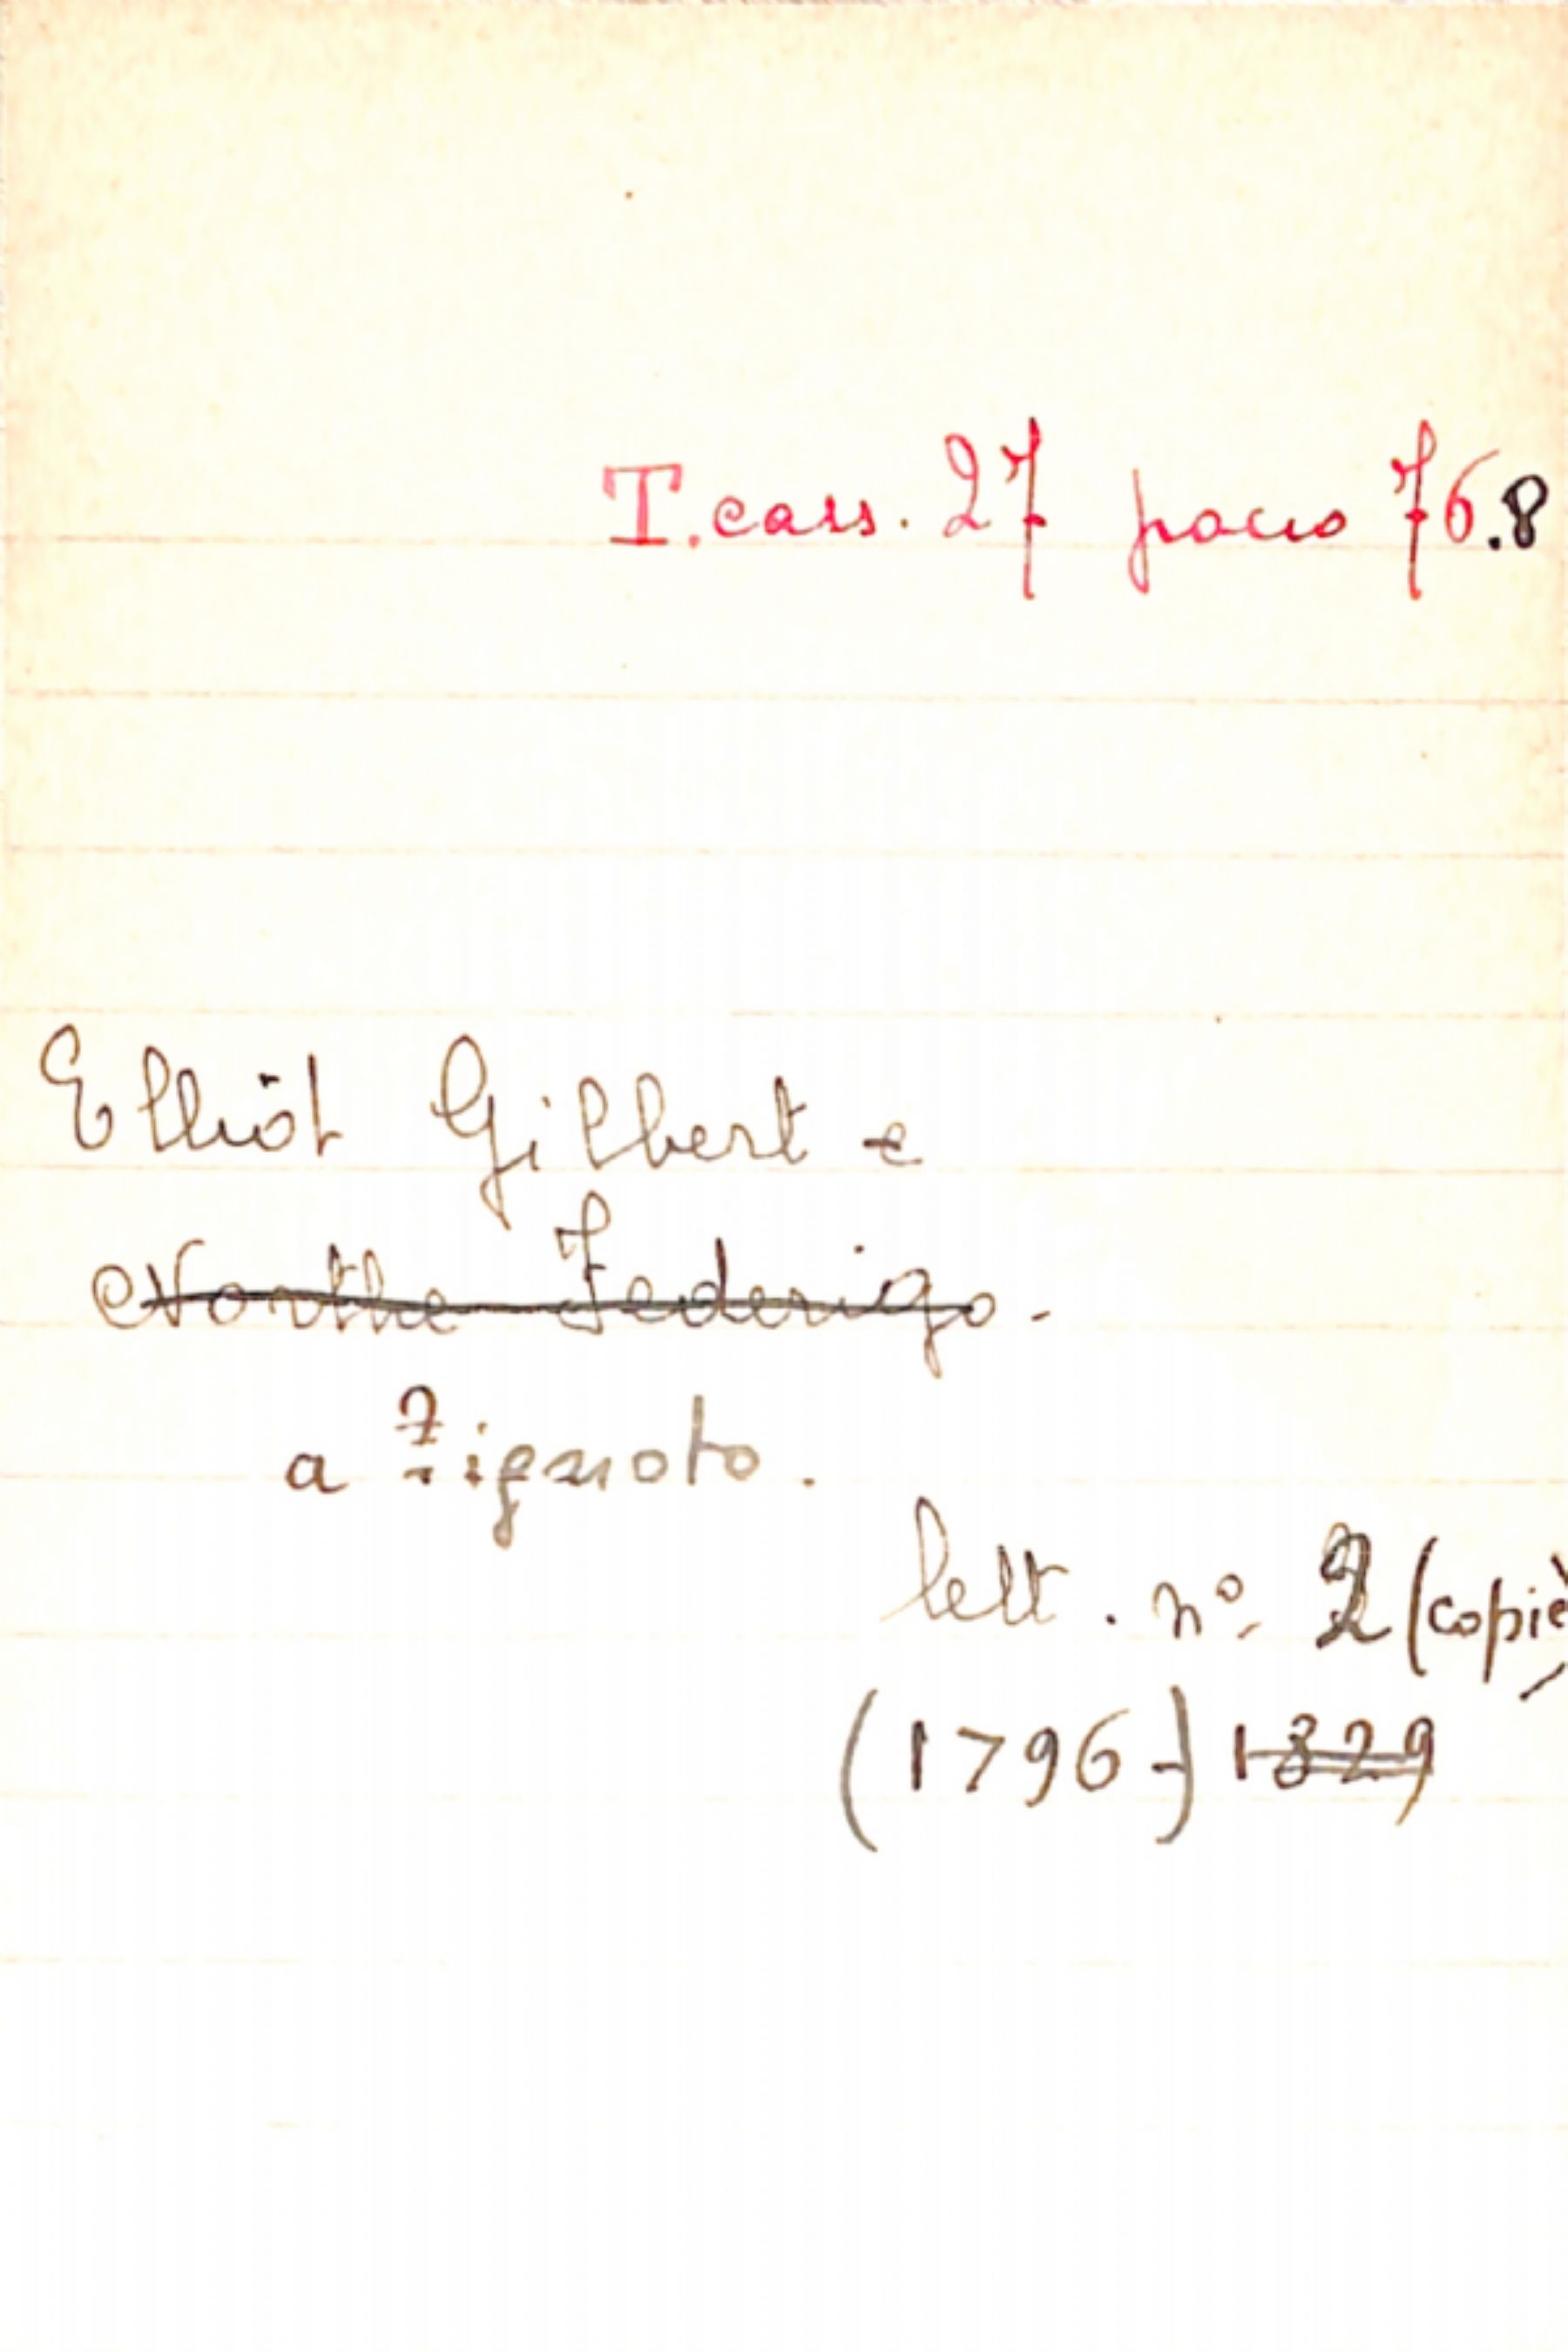 T. cass. 27 pacco 76.8
Elliot Gilbert e
Northe Federigo.
a ? ignoto.
lett. nº 2 (copie)
(1796-) 1829